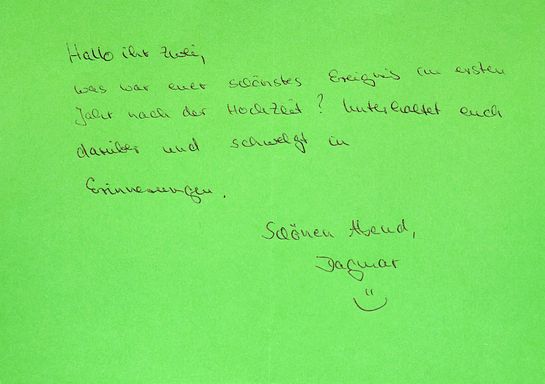 Hallo ihr zwei,
was war euer schönstes Ereignis im ersten
Jahr nach der Hochzeit? Unterhaltet euch
darüber und schwelgt in
Erinnerungen.
Schönen Abend,
Dagmar